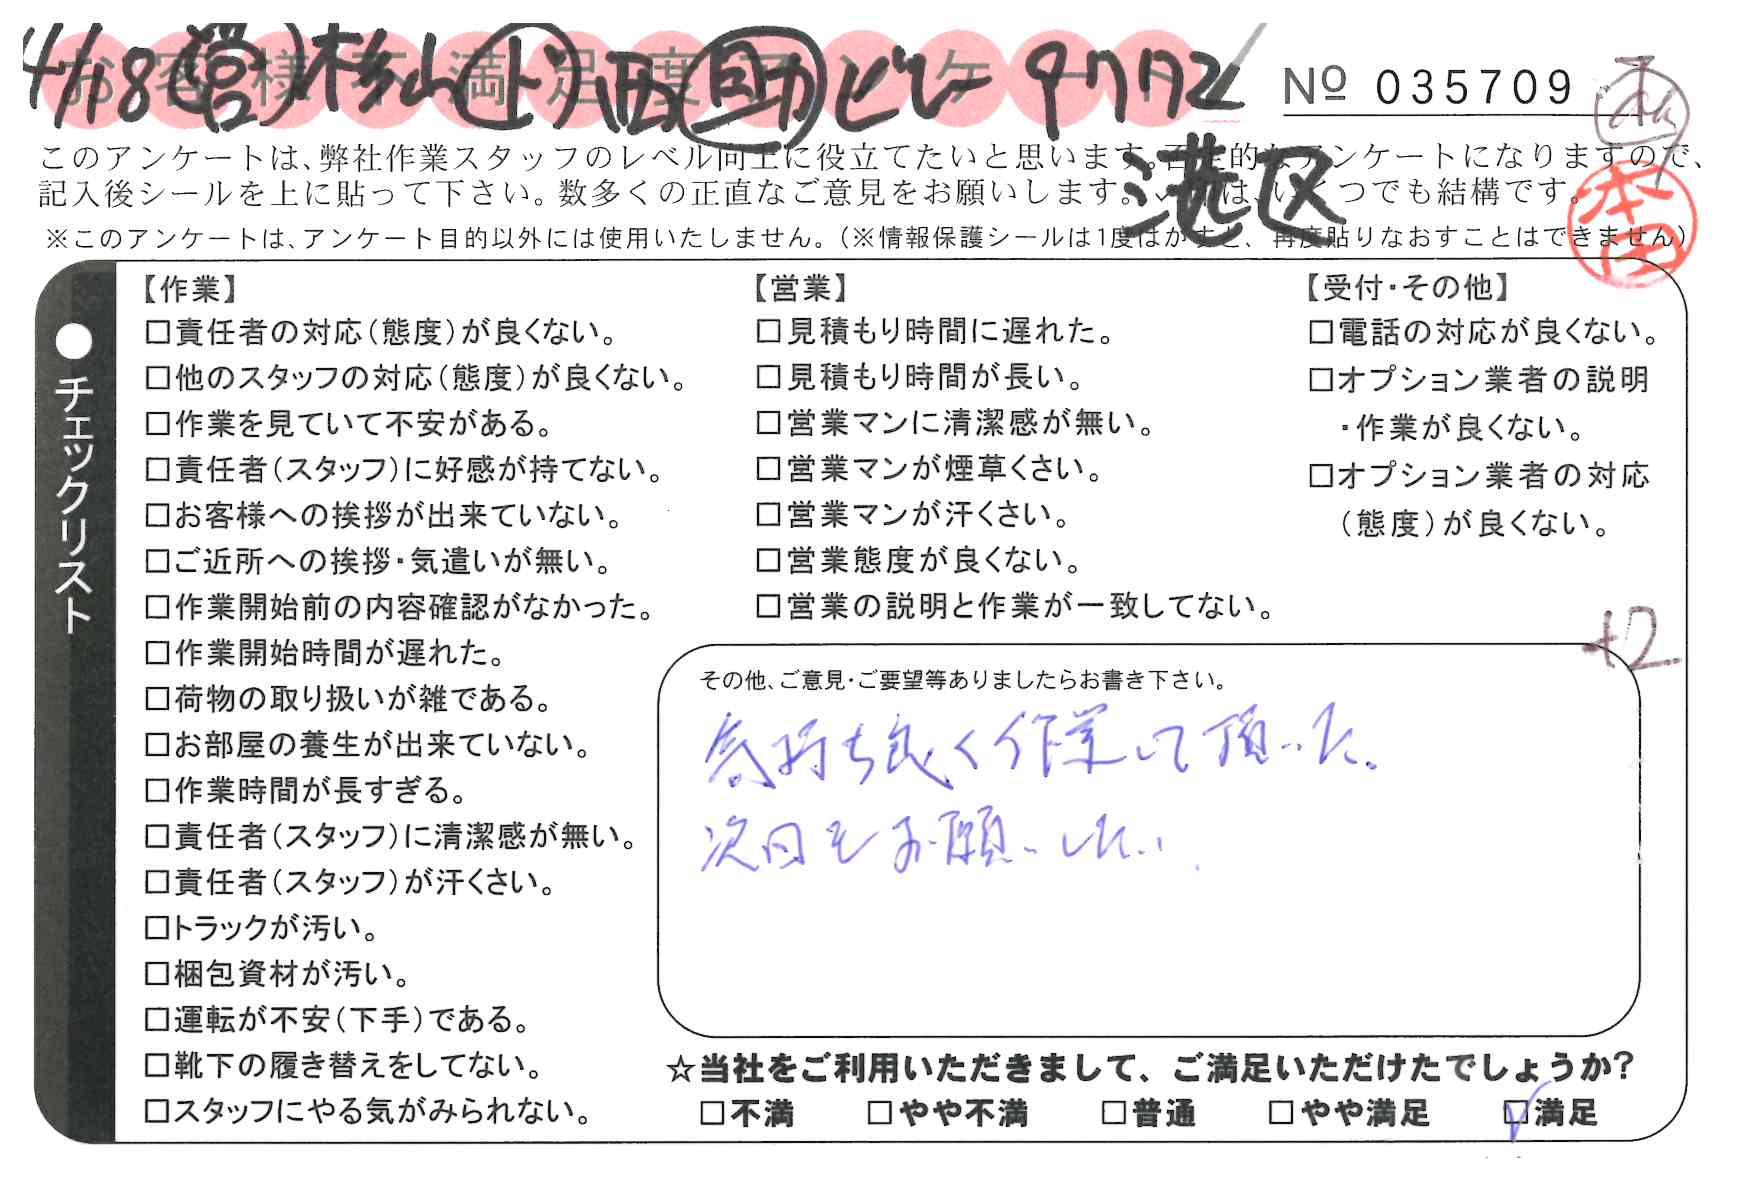 お客様不満足度アンケート
4/18 (営) 杉山 (ド) 西 (助) ビレー 9772
港区
№ 035709
本田
このアンケートは、弊社作業スタッフのレベル向上に役立てたいと思います。否定的なアンケートになりますので、
記入後シールを上に貼って下さい。数多くの正直なご意見をお願いします。 は、いくつでも結構です。
※このアンケートは、アンケート目的以外には使用いたしません。(※情報保護シールは1度はがすと、再度貼りなおすことはできません)
●チェックリスト
【作業】
□責任者の対応(態度)が良くない。
□他のスタッフの対応(態度)が良くない。
□作業を見ていて不安がある。
□責任者(スタッフ)に好感が持てない。
□お客様への挨拶が出来ていない。
□ご近所への挨拶・気遣いが無い。
□作業開始前の内容確認がなかった。
□作業開始時間が遅れた。
□荷物の取り扱いが雑である。
□お部屋の養生が出来ていない。
□作業時間が長すぎる。
□責任者(スタッフ)に清潔感が無い。
□責任者(スタッフ)が汗くさい。
□トラックが汚い。
□梱包資材が汚い。
□運転が不安(下手)である。
□靴下の履き替えをしてない。
□スタッフにやる気がみられない。
【営業】
□見積もり時間に遅れた。
□見積もり時間が長い。
□営業マンに清潔感が無い。
□営業マンが煙草くさい。
□営業マンが汗くさい。
□営業態度が良くない。
□営業の説明と作業が一致してない。
【受付・その他】
□電話の対応が良くない。
□オプション業者の説明
・作業が良くない。
□オプション業者の対応
(態度)が良くない。
+2
その他、ご意見・ご要望等ありましたらお書き下さい。
気持ち良く作業して頂いた。
次回もお願いしたい。
☆当社をご利用いただきまして、ご満足いただけたでしょうか?
□不満 □やや不満 □普通 □やや満足 ☑満足